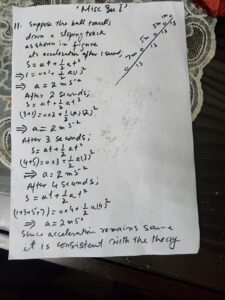 'Misc Qu I'
11. Suppose the ball travels
down a sloping track
as shown in figure
its acceleration after 1 second,
S = ut + ½at²
⇒ 1 = 0x1 + ½a(1)²
⇒ a = 2ms⁻²
After 2 seconds;
S = ut + ½at²
(3+1) = 0x2 + ½(a)(2)²
⇒ a = 2ms⁻²
After 3 seconds;
S = ut + ½at²
(4+5) = 0x3 + ½a(3)²
⇒ a = 2ms⁻²
After 4 seconds;
S = ut + ½at²
(1+3+5+7) = 0x4 + ½a(4)²
⇒ a = 2ms⁻²
Since acceleration remains same
it is consistent with the theory
1m 0
3m 0 1S
5m 0 1S
7m 0 1S
0 1S